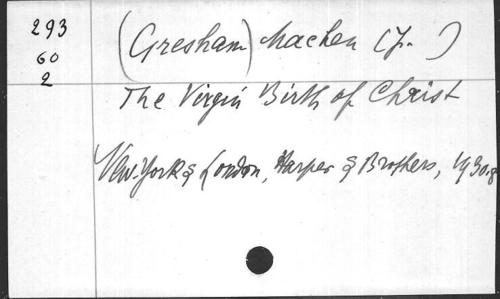 293
60
2
(Gresham) Machen (J. )
The Virgin Birth of Christ
New-York & London, Harper & Brothers, 1930. 8